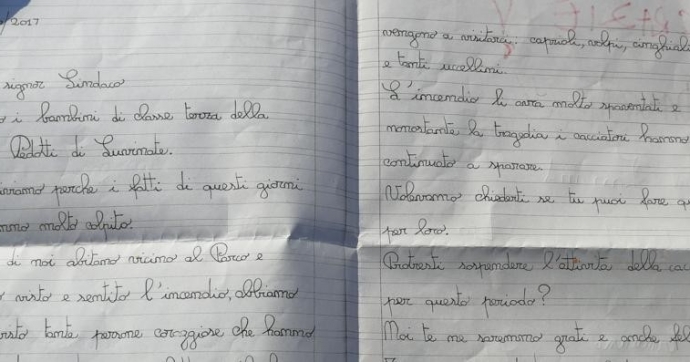 /2017
signor Sindaco
i bambini di classe terza della
Pedotti di Luvinate.
perche i fatti di questi giorni
molto colpito.
di noi abitano vicino al Parco e
visto e sentito l'incendio, abbiamo
tante persone coraggiose che hanno
vengono a visitarci: caprioli, volpi, cinghiali
e tanti uccellini.
L'incendio li avrà molto spaventati e
nonostante la tragedia i cacciatori hanno
continuato a sparare.
Volevamo chiederti se tu puoi fare
per loro.
Potresti sospendere l'attività della
per questo periodo?
Noi te ne saremmo grati e anche